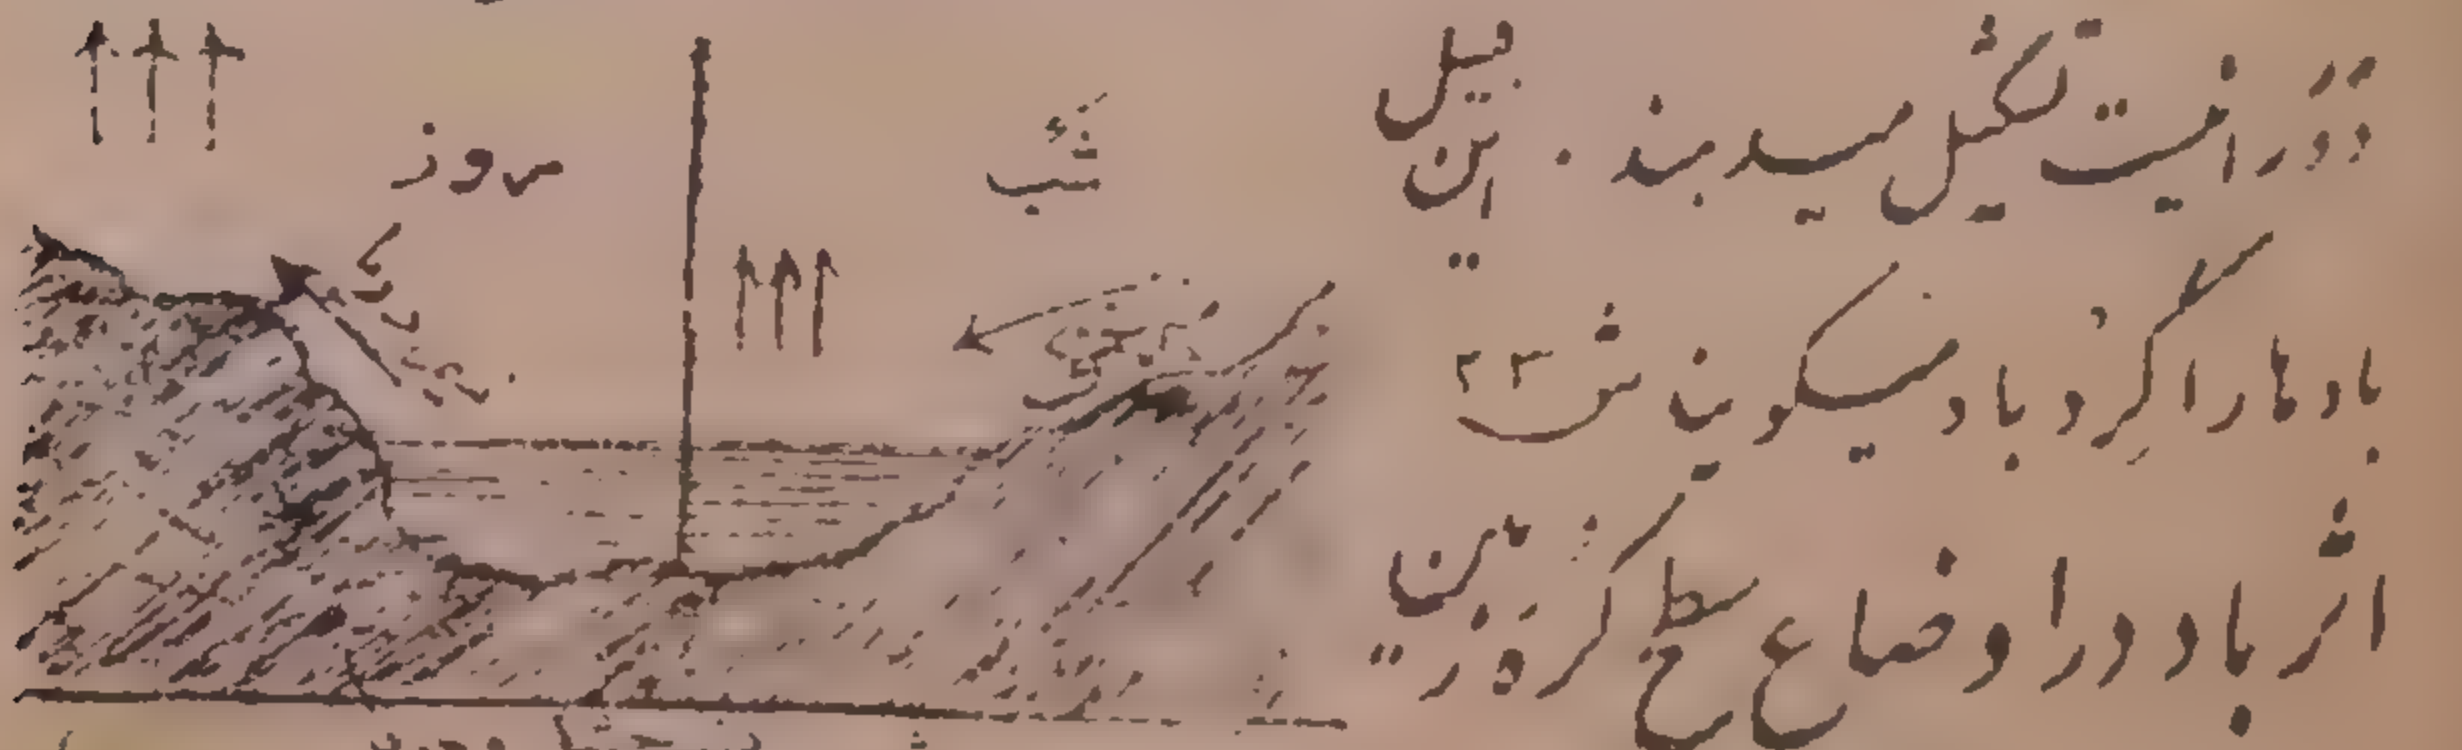 دَوَرانیت تشکیل میدهند . این قبیل
بادها را گِردباد میگویند ش ۲۳
اثر باد در اوضاع سطح کرهٔ زمین
شب
روز